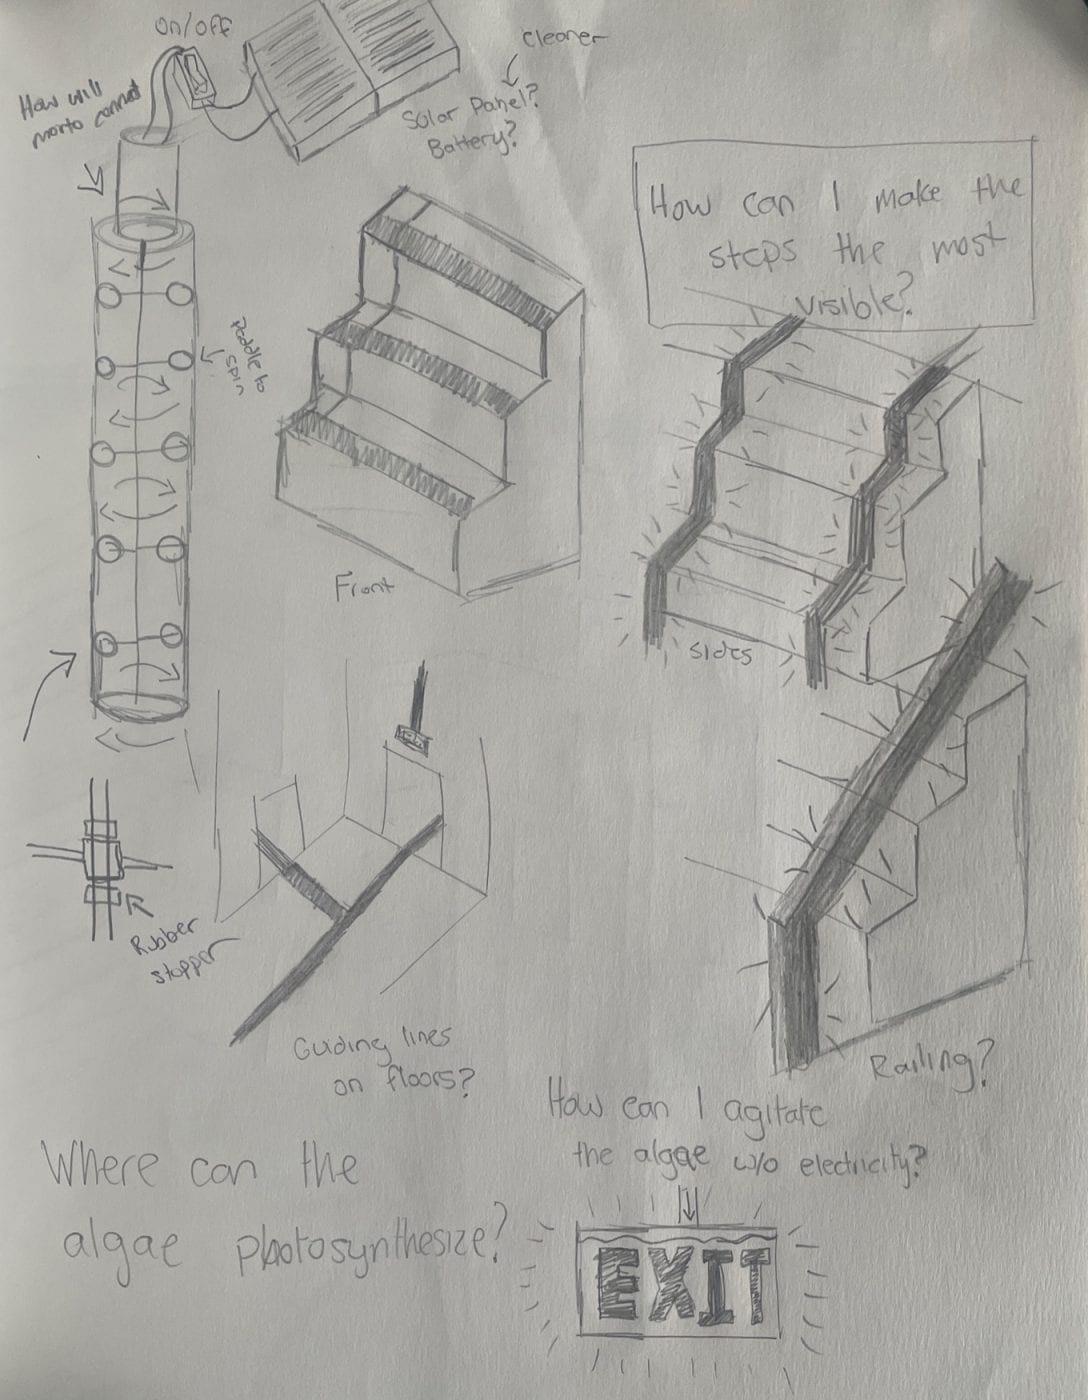 on/off
How will
morto connat
Cleaner
Solar Panel?
Battery?
How can I make the
steps the most
visible?
Paddle to
spin
Front
sides
Rubber
stopper
Guding lines
on floors?
Railing?
How can I agitate
the algae w/o electricity?
Where can the
algae photosynthesize?
EXIT